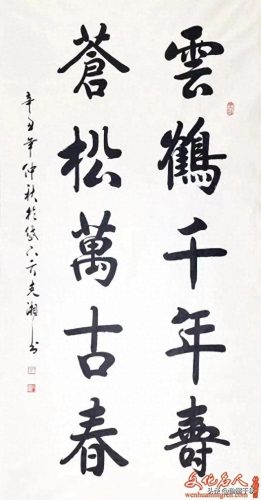 雲鶴千年壽
蒼松萬古春
辛丑年仲秋於
克湘书
文化名人
wenhuamingren.com